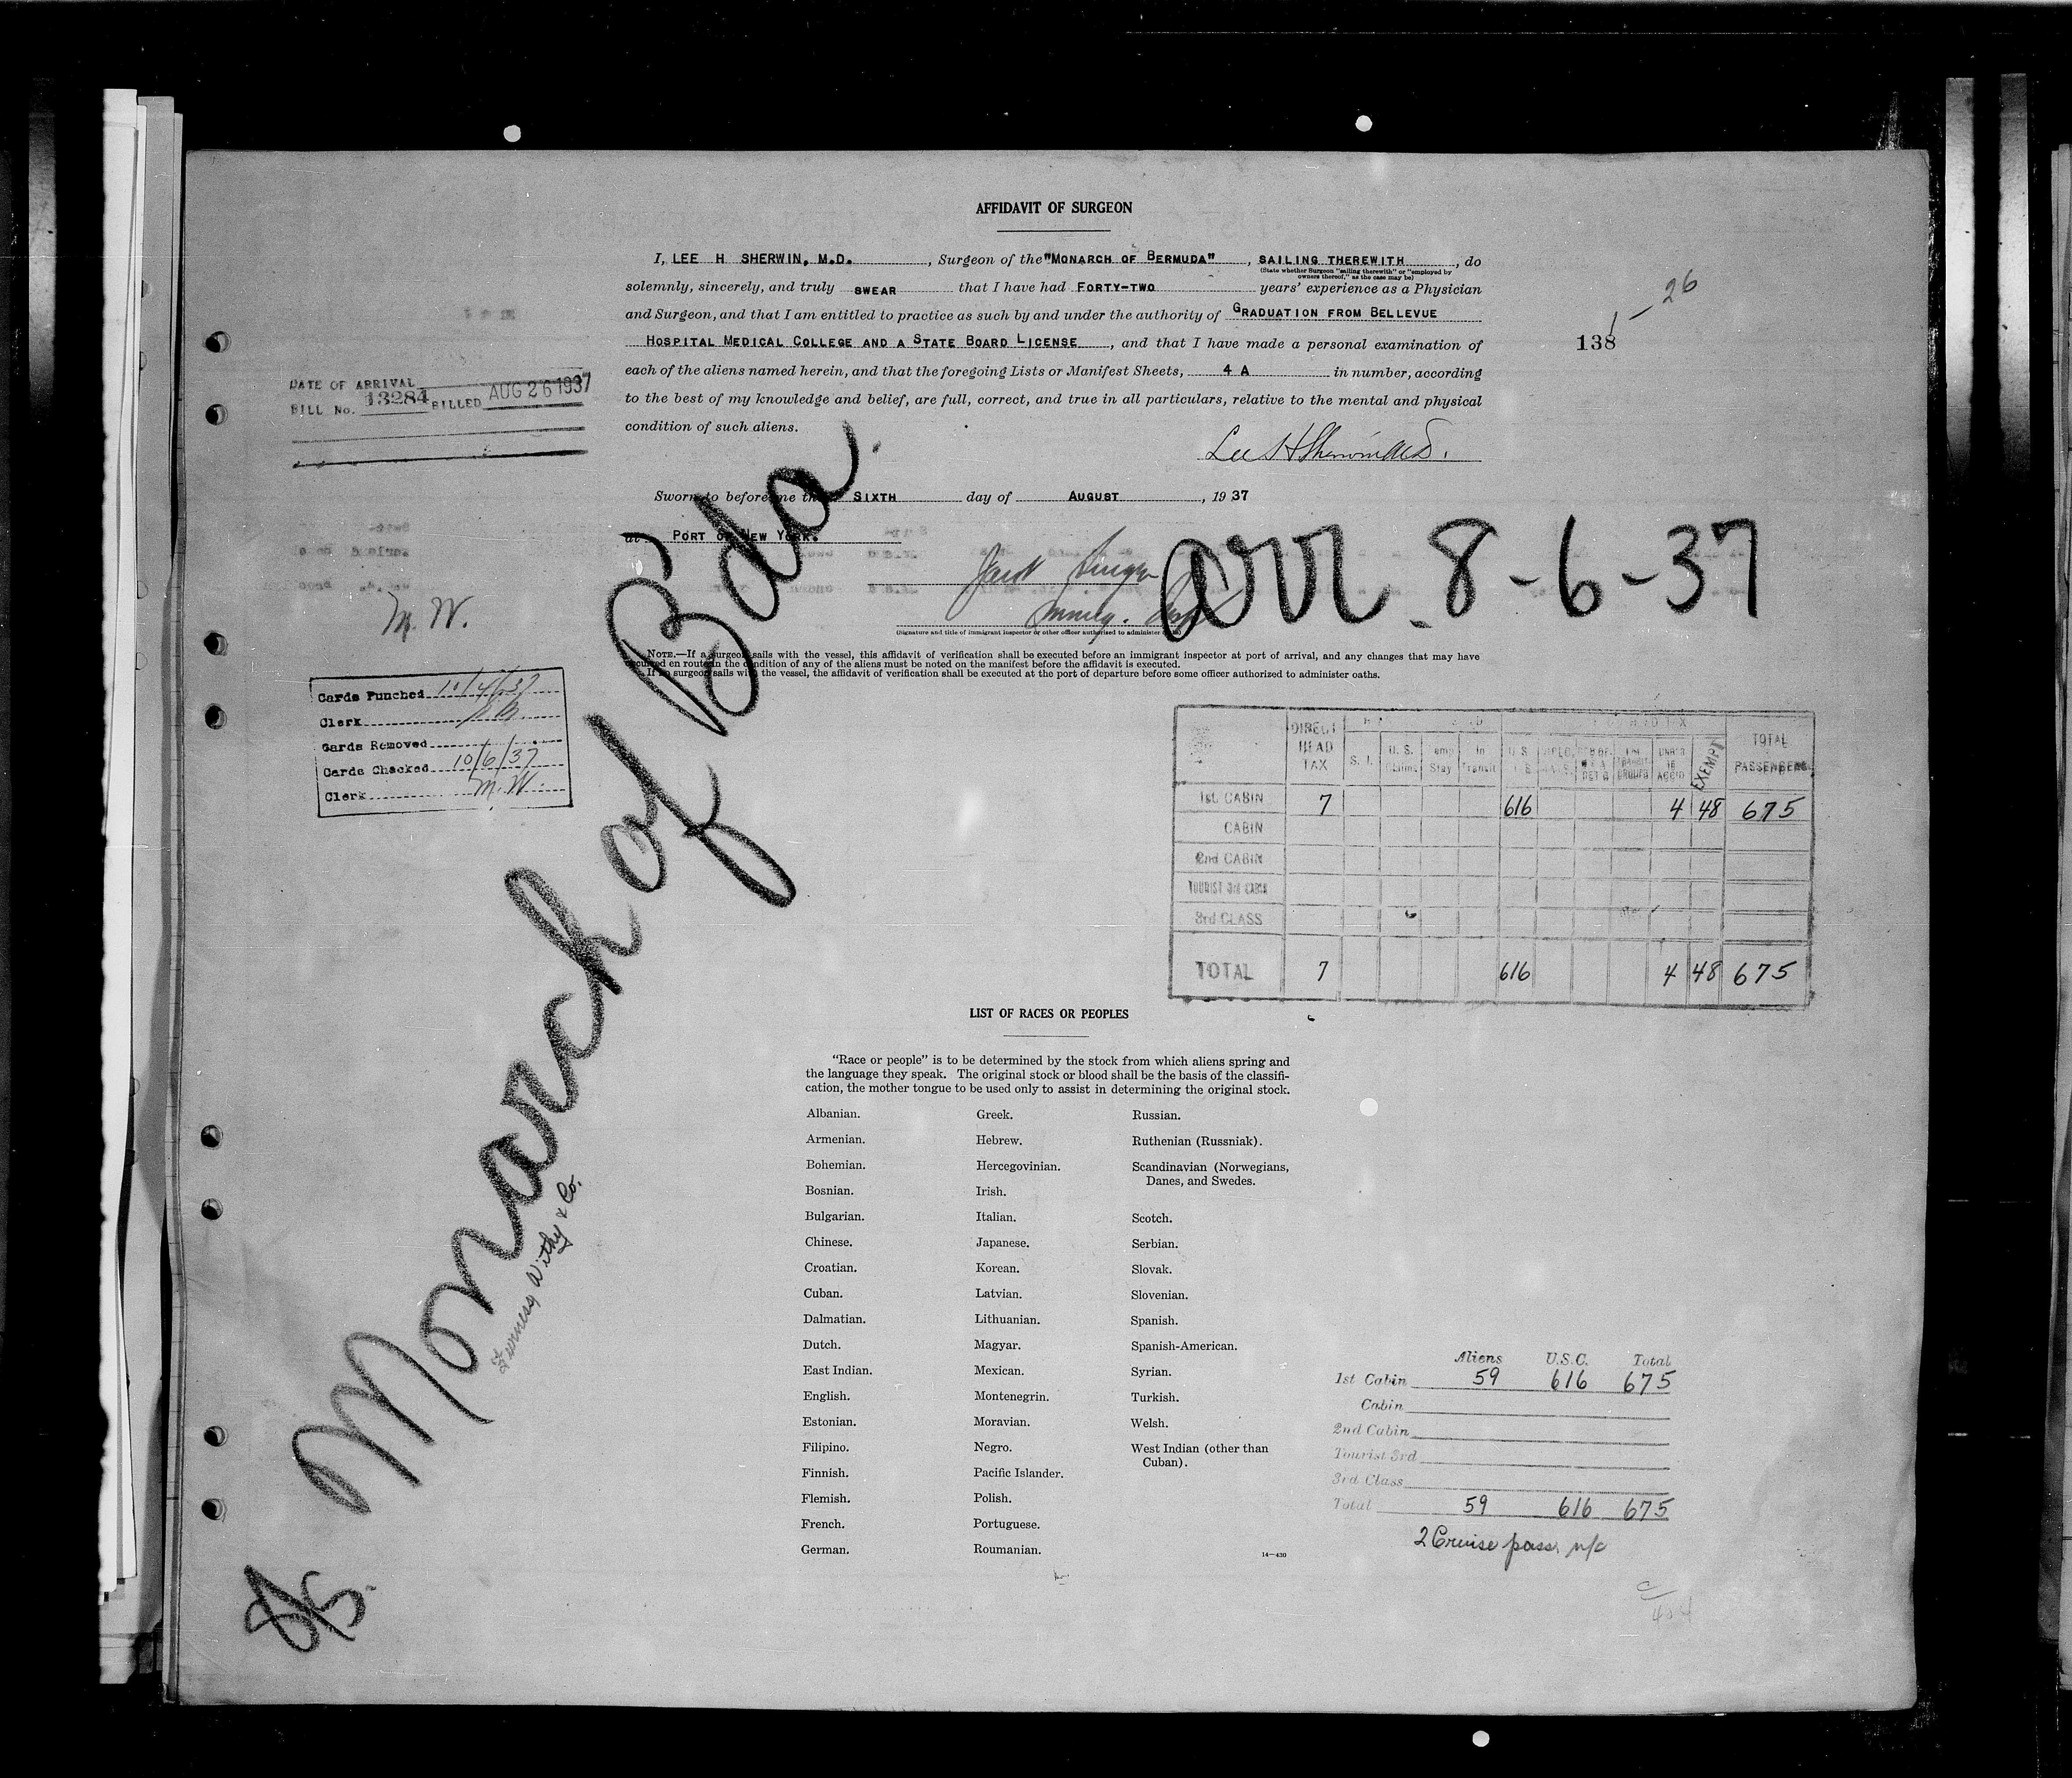 AFFIDAVIT OF SURGEON
I, LEE H SHERWIN, M.D. , Surgeon of the "MONARCH OF BERMUDA" , SAILING THEREWITH , do
(State whether Surgeon "sailing therewith" or "employed by
owners thereof," as the case may be)
solemnly, sincerely, and truly SWEAR that I have had FORTY-TWO years' experience as a Physician
and Surgeon, and that I am entitled to practice as such by and under the authority of GRADUATION FROM BELLEVUE
HOSPITAL MEDICAL COLLEGE AND A STATE BOARD LICENSE , and that I have made a personal examination of
each of the aliens named herein, and that the foregoing Lists or Manifest Sheets, 4 A in number, according
to the best of my knowledge and belief, are full, correct, and true in all particulars, relative to the mental and physical
condition of such aliens.
Lee H Sherwin M.D.
26
138
DATE OF ARRIVAL
BILL No. 13284 BILLED AUG 26 1937
Sworn to before me this SIXTH day of AUGUST , 19 37
at PORT OF NEW YORK.
arr. 8-6-37
(Signature and title of immigrant inspector or other officer authorized to administer
M. W.
NOTE.—If a surgeon sails with the vessel, this affidavit of verification shall be executed before an immigrant inspector at port of arrival, and any changes that may have
occurred en route in the condition of any of the aliens must be noted on the manifest before the affidavit is executed.
If no surgeon sails with the vessel, the affidavit of verification shall be executed at the port of departure before some officer authorized to administer oaths.
Cards Punched 10/4/37
Clerk
Cards Removed
Cards Checked 10/6/37
Clerk M. W.
Monarch of B'da.
Furness Withy & Co.
DIRECT HEAD TAX S. I. U. S. Claims Temp Stay In Transit U. S. EXEMPT TOTAL PASSENGERS
1st. CABIN 7 616 4 48 675
CABIN
2nd CABIN
TOURIST 3rd CABIN
3rd CLASS
TOTAL 7 616 4 48 675
LIST OF RACES OR PEOPLES
"Race or people" is to be determined by the stock from which aliens spring and
the language they speak. The original stock or blood shall be the basis of the classifi-
cation, the mother tongue to be used only to assist in determining the original stock.
Albanian. Greek. Russian.
Armenian. Hebrew. Ruthenian (Russniak).
Bohemian. Hercegovinian. Scandinavian (Norwegians,
Danes, and Swedes.
Bosnian. Irish.
Bulgarian. Italian. Scotch.
Chinese. Japanese. Serbian.
Croatian. Korean. Slovak.
Cuban. Latvian. Slovenian.
Dalmatian. Lithuanian. Spanish.
Dutch. Magyar. Spanish-American.
East Indian. Mexican. Syrian.
English. Montenegrin. Turkish.
Estonian. Moravian. Welsh.
Filipino. Negro. West Indian (other than
Cuban).
Finnish. Pacific Islander.
Flemish. Polish.
French. Portuguese.
German. Roumanian.
14—430
Aliens U.S.C. Total
1st Cabin 59 616 675
Cabin
2nd Cabin
Tourist 3rd
3rd Class
Total 59 616 675
2 Cruise pass. n/c